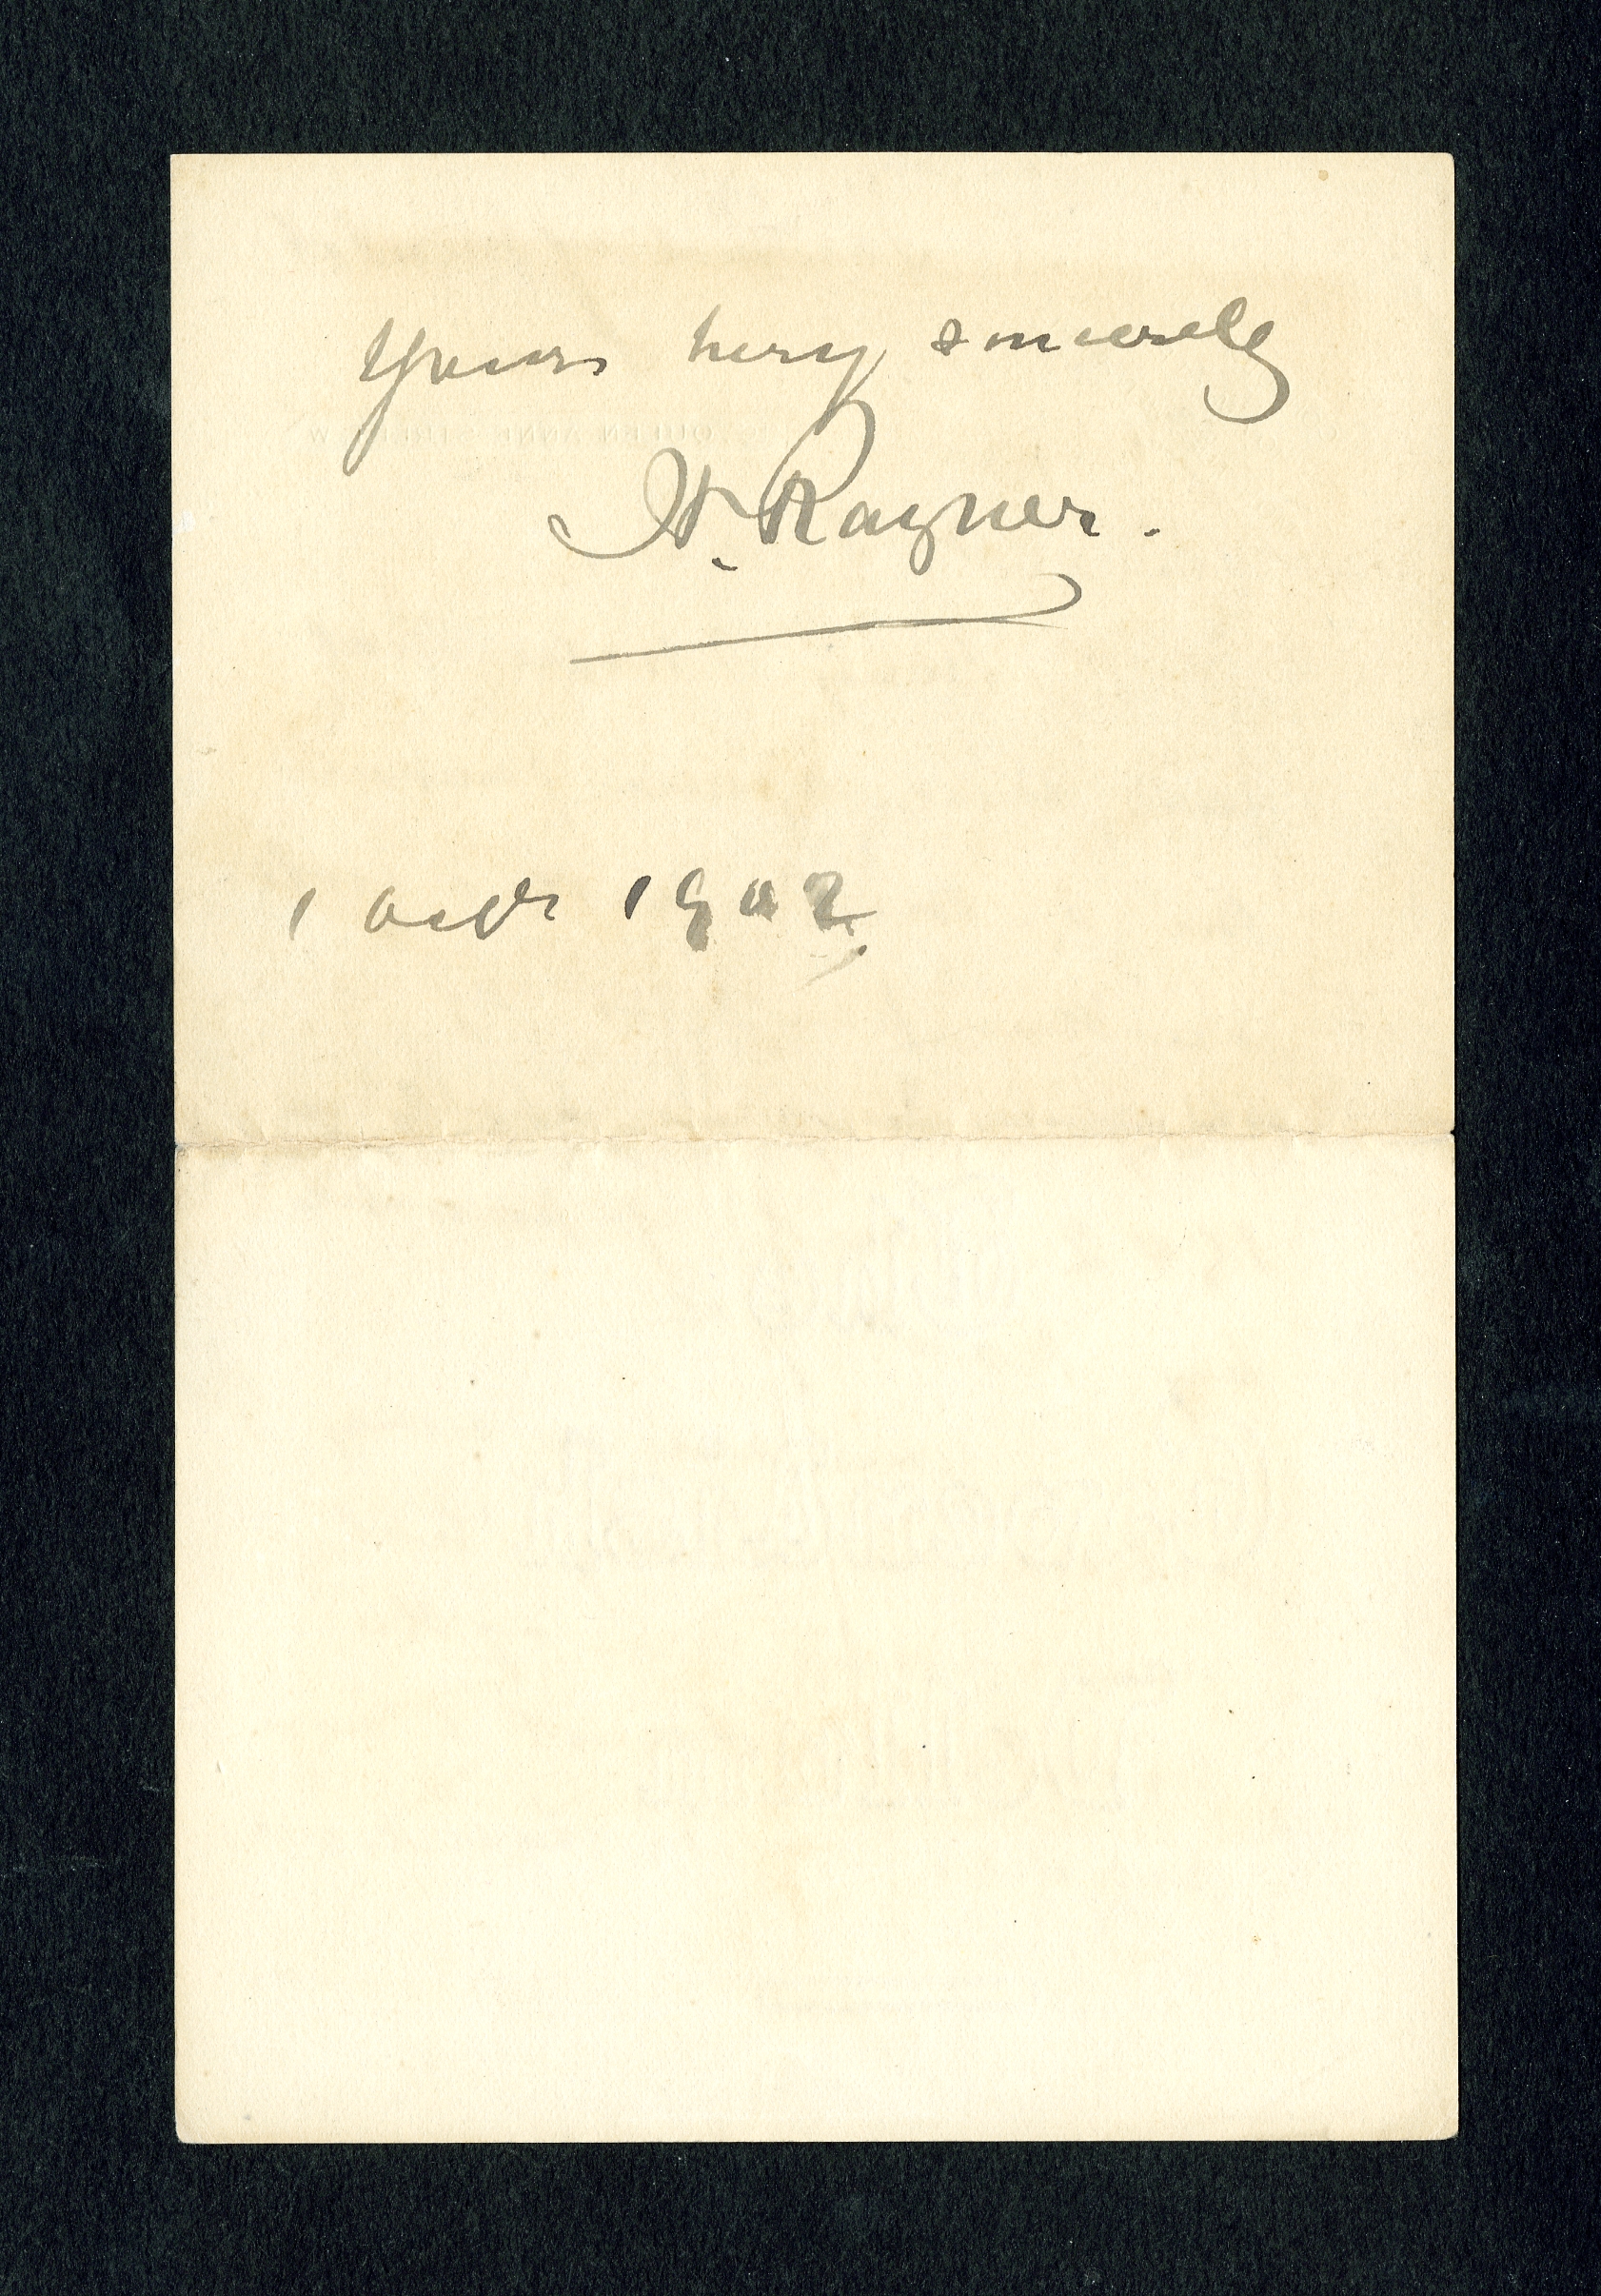 Yours very sincerely
H. Rayner.
1 Octr 1902